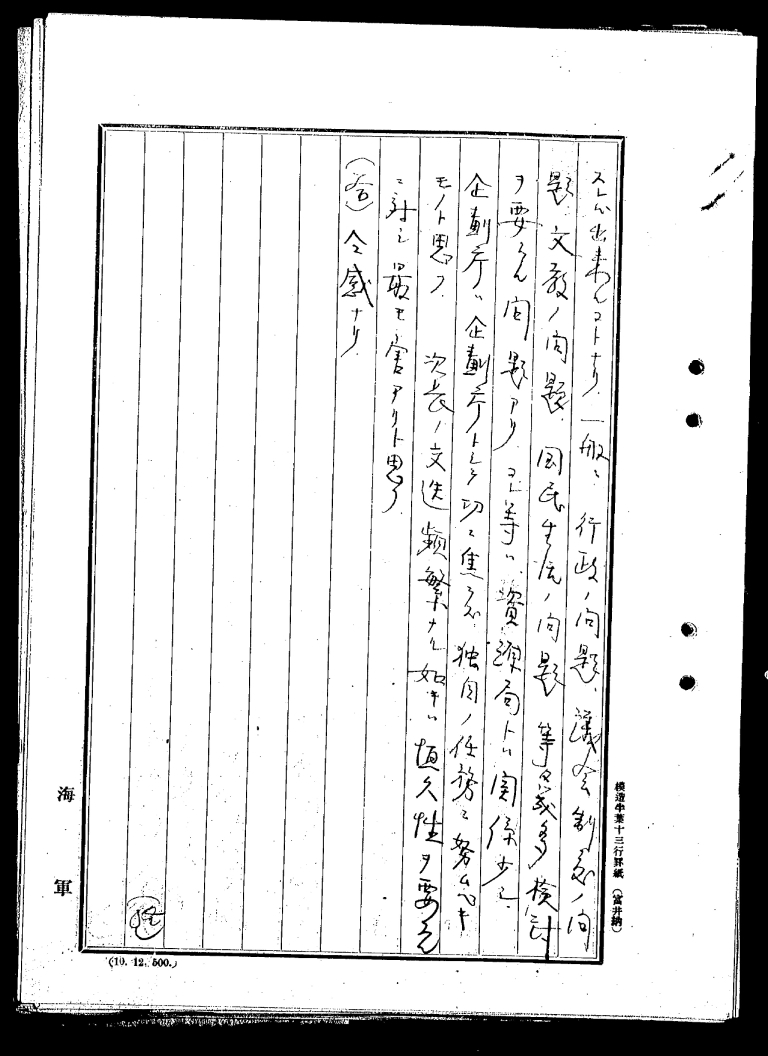 スレバ出来ルコトナリ 一般ニ 行政ノ問題、議会制度ノ問
題、文教ノ問題、国民生活ノ問題 等 多 検討
ヲ要スル問題アリ 之等ハ、資源局トハ関係少シ、
企劃庁ハ企劃庁トシテ功ニ焦ラズ、独自ノ任務ニ努ムベキ
モノト思フ 次長ノ交迭頻繁ナル如キハ恒久性ヲ要スル
ニ対シ最モ害アリト思フ
(答) 仝感ナリ
模造半葉十三行罫紙 (富井納)
海軍
(10. 12. 500.)